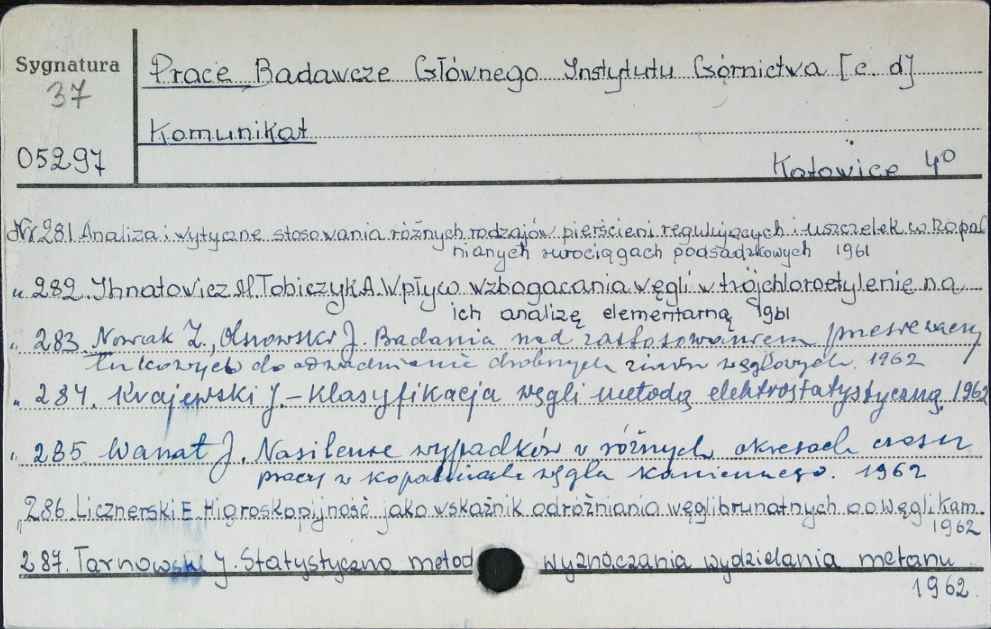 Sygnatura
37
05297
Prace Badawcze Głównego Instytutu Górnictwa [c. d]
Komunikat
Katowice 4º
Nr 281 Analiza i wytyczne stosowania różnych rodzajów pierścieni regulujących i uszczelek w kopal
nianych rurociągach podsadzkowych 1961
" 282. Ihnatowicz M. Tobiczyk A. Wpływ wzbogacania węgli w trójchloroetylenie na
ich analizę elementarną 1961
" 283. Nowak Z., Olszowski J. Badania nad zastosowaniem przesiewaczy
łukowych do odwadniania drobnych ziarn węglowych. 1962
" 284. Krajewski J. – Klasyfikacja węgli metodą elektrostatystyczną. 1962
" 285 Wanat J. Nasilenie wypadków w różnych okresach czasu
pracy w kopalniach węgla kamiennego. 1962
" 286. Licznerski E. Higroskopijność jako wskaźnik odróżniania węgli brunatnych od węgli kam.
1962
287. Tarnowski J. Statystyczna metod wyznaczania wydzielania metanu
1962.